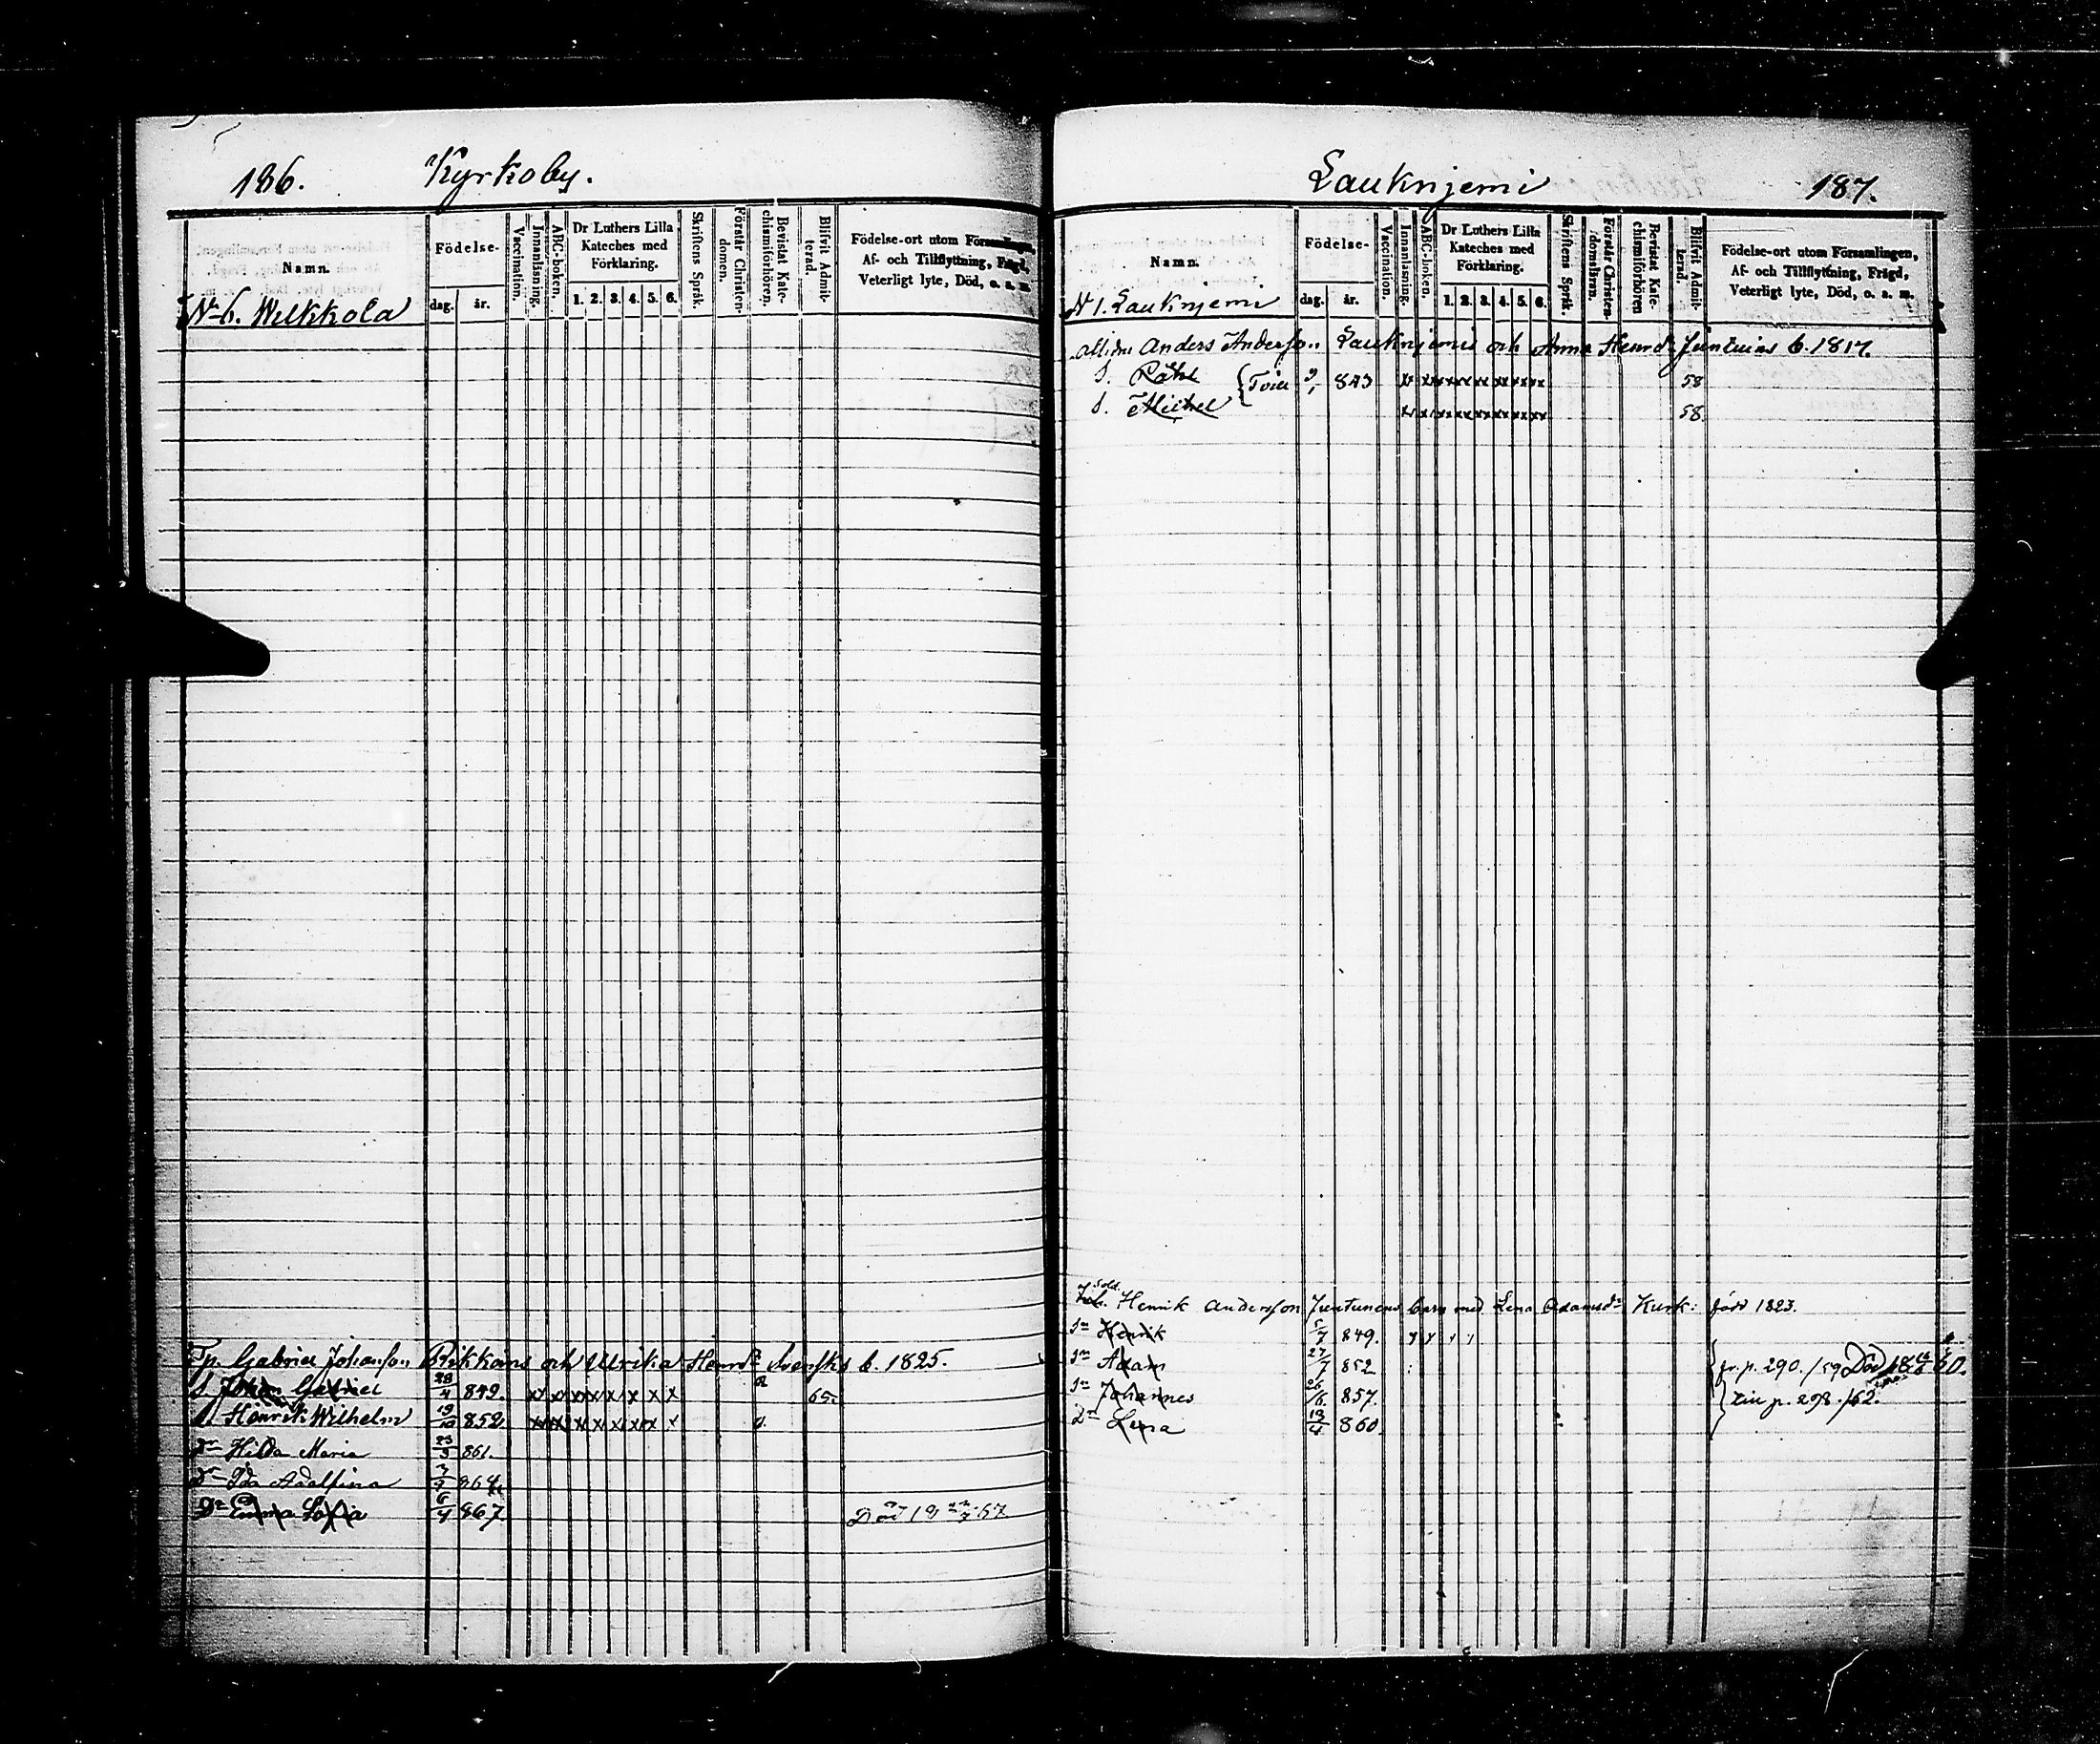 186. Kyrkoby.
Namn.
Födelse-
dag. år.
Vaccination.
Innanläsning.
ABC-boken.
Dr Luthers Lilla
Kateches med
Förklaring.
1. 2. 3. 4. 5. 6.
Skriftens Språk.
Förstår Christen-
domen.
Bevistat Kate-
chismiförhören.
Blifvit Admit-
terad.
Födelse-ort utom Församlingen,
Af- och Tillflyttning, Frägd,
Veterligt lyte, Död, o. s. m.
N 6. Welkkola
Tp. Gabriel Johansson Rikkäins och Ulrika Henrd Svensks b. 1825.
S Johan Gabriel 28/4 849. x x x x x x x x 65.
S. Henrik Wilhelm 19/10 852 x x x x x x x x
Dr Hilda Maria 23/3 861.
Dr Ida Adolfina 864
Dr Emma Sofia 6/4 867 Död 19 67
Lauknjemi 187.
Namn.
Födelse-
dag. år.
Vaccination.
Innanläsning.
ABC-boken.
Dr Luthers Lilla
Kateches med
Förklaring.
1. 2. 3. 4. 5. 6.
Skriftens Språk.
Förstår Christen-
domsläran.
Bevistat Kate-
chismiförhören
Blifvit Admit-
terad.
Födelse-ort utom Församlingen,
Af- och Tillflyttning, Frägd,
Veterligt lyte, Död, o. s. m.
N 1. Lauknjemi
Anders Andersson Lauknjemis och Anna Henrd Juntuins b. 1817.
S. 843 x x x x x x x x 58
S. Michel x x x x x x x x 58
Sold. Henrik Andersson Juntunens barn med Lena Adamsdr Kurk: född 1823.
Sn Henrik 5/7 849.
Sn Adam 27/7 852 fr. p. 290. /59 Död 60.
Sn Johannes 26/6 857. till p. 298. /62.
Dr Lena 860